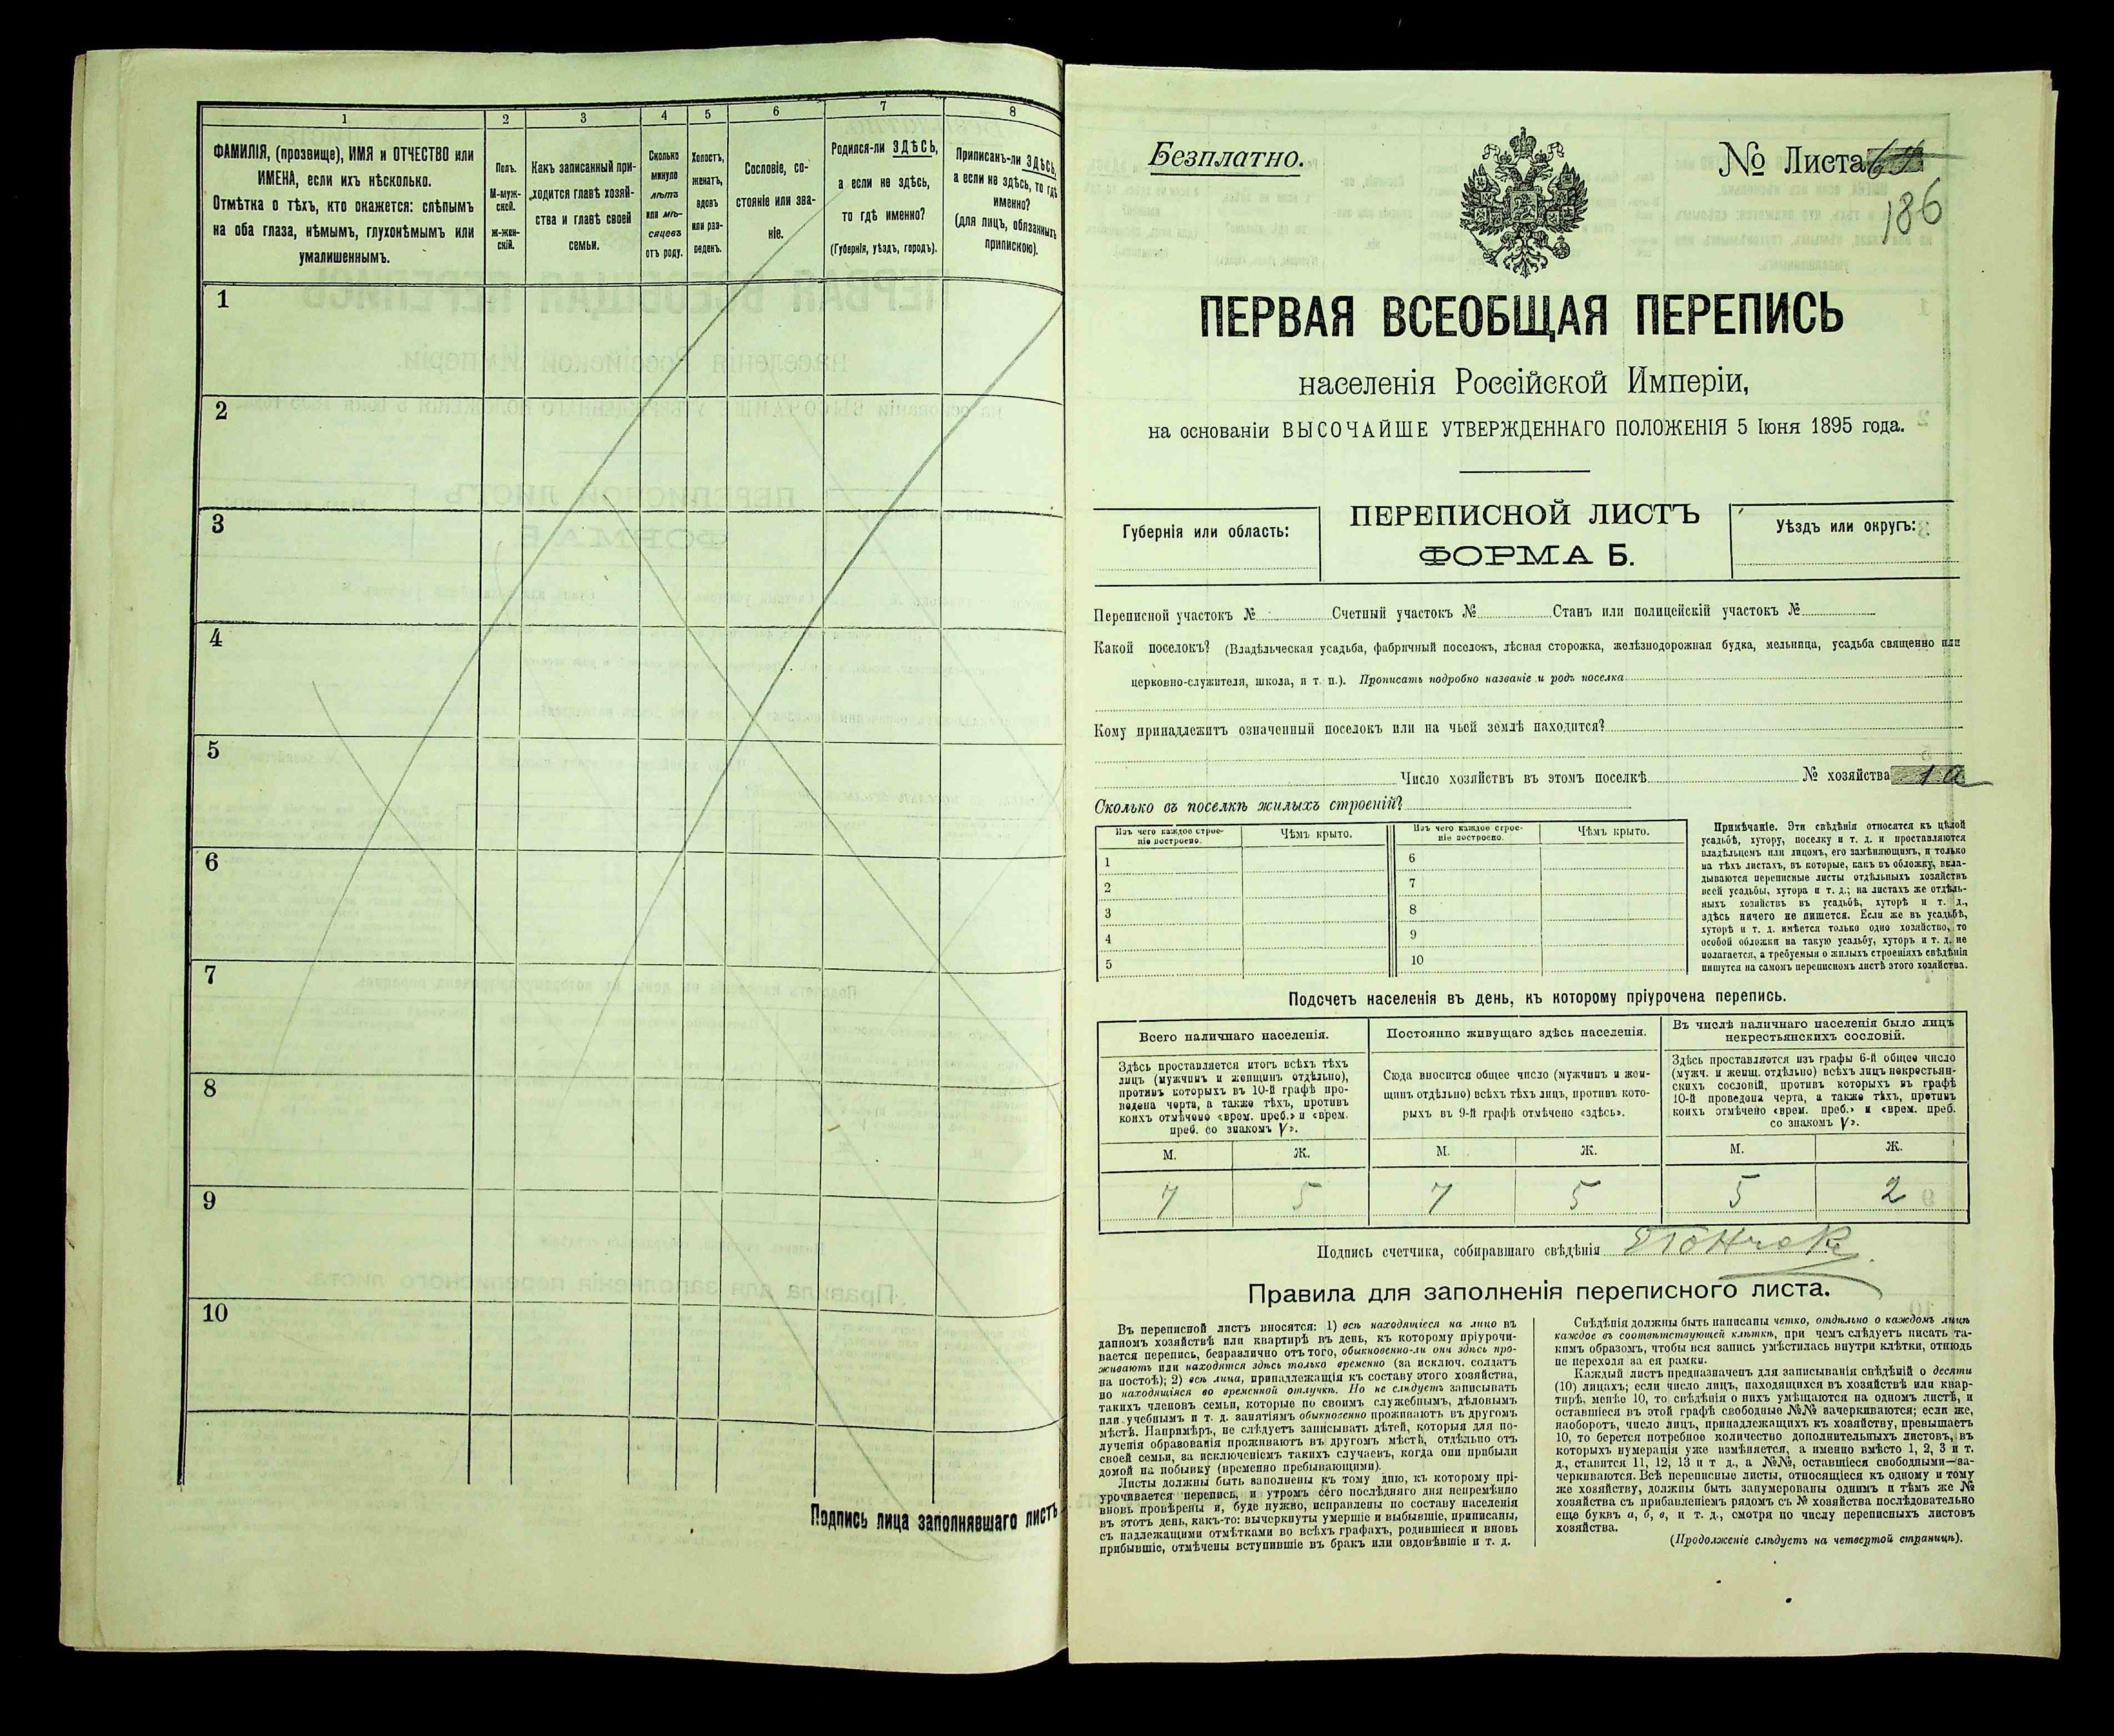 1
2
3
4
5
6
7
8
ФАМИЛІЯ, (прозвище), ИМЯ и ОТЧЕСТВО или
ИМЕНА, если ихъ нѣсколько.
Отмѣтка о тѣхъ, кто окажется: слѣпымъ
на оба глаза, нѣмымъ, глухонѣмымъ или
умалишеннымъ.
Полъ.
М-муж-
ской.
ж-жен-
скій.
Какъ записанный при-
ходится главѣ хозяй-
ства и главѣ своей
семьи.
Сколько
минуло
лѣтъ
или мѣ-
сяцевъ
отъ роду.
Холостъ,
женатъ,
вдовъ
или раз-
веденъ.
Сословіе, со-
стояніе или зва-
ніе.
Родился-ли ЗДѢСЬ,
а если не здѣсь,
то гдѣ именно?
(Губернія, уѣздъ, городъ).
Приписанъ-ли ЗДѢСЬ,
а если не здѣсь, то гдѣ
именно?
(для лицъ, обязанныхъ
припискою).
1
2
3
4
5
6
7
8
9
10
Подпись лица заполнявшаго листъ
Безплатно.
№ Листа
186
ПЕРВАЯ ВСЕОБЩАЯ ПЕРЕПИСЬ
населенія Россійской Имперіи,
на основаніи ВЫСОЧАЙШЕ УТВЕРЖДЕННАГО ПОЛОЖЕНІЯ 5 Іюня 1895 года.
Губернія или область:
ПЕРЕПИСНОЙ ЛИСТЪ
ФОРМА Б.
Уѣздъ или округъ:
Переписной участокъ № Счетный участокъ № Станъ или полицейскій участокъ №
Какой поселокъ? (Владѣльческая усадьба, фабричный поселокъ, лѣсная сторожка, желѣзнодорожная будка, мельница, усадьба священно или
церковно-служителя, школа, и т. п.). Прописать подробно названіе и родъ поселка
Кому принадлежитъ означенный поселокъ или на чьей землѣ находится?
Число хозяйствъ въ этомъ поселкѣ № хозяйства 1 а
Сколько въ поселкѣ жилыхъ строеній?
Изъ чего каждое строе-
ніе построено.
Чѣмъ крыто.
Изъ чего каждое строе-
ніе построено.
Чѣмъ крыто.
1
2
3
4
5
6
7
8
9
10
Примѣчаніе. Эти свѣдѣнія относятся къ цѣлой
усадьбѣ, хутору, поселку и т. д. и проставляются
владѣльцемъ или лицомъ, его замѣняющимъ, и только
на тѣхъ листахъ, въ которые, какъ въ обложку, вкла-
дываются переписные листы отдѣльныхъ хозяйствъ
всей усадьбы, хутора и т. д.; на листахъ же отдѣль-
ныхъ хозяйствъ въ усадьбѣ, хуторѣ и т. д.,
здѣсь ничего не пишется. Если же въ усадьбѣ,
хуторѣ и т. д. имѣется только одно хозяйство, то
особой обложки на такую усадьбу, хуторъ и т. д. не
полагается, а требуемыя о жилыхъ строеніяхъ свѣдѣнія
пишутся на самомъ переписномъ листѣ этого хозяйства.
Подсчетъ населенія въ день, къ которому пріурочена перепись.
Всего наличнаго населенія.
Постоянно живущаго здѣсь населенія.
Въ числѣ наличнаго населенія было лицъ
некрестьянскихъ сословій.
Здѣсь проставляется итогъ всѣхъ тѣхъ
лицъ (мужчинъ и женщинъ отдѣльно),
противъ которыхъ въ 10-й графѣ про-
ведена черта, а также тѣхъ, противъ
коихъ отмѣчено «врем. преб.» и «врем.
преб. со знакомъ V».
Сюда вносится общее число (мужчинъ и жен-
щинъ отдѣльно) всѣхъ тѣхъ лицъ, противъ кото-
рыхъ въ 9-й графѣ отмѣчено «здѣсь».
Здѣсь проставляется изъ графы 6-й общее число
(мужч. и женщ. отдѣльно) всѣхъ лицъ некрестьян-
скихъ сословій, противъ которыхъ въ графѣ
10-й проведена черта, а также тѣхъ, противъ
коихъ отмѣчено «врем. преб.» и «врем. преб.
со знакомъ V».
М. Ж. М. Ж. М. Ж.
7 5 7 5 5 2
Подпись счетчика, собиравшаго свѣдѣнія
Правила для заполненія переписного листа.
Въ переписной листъ вносятся: 1) всѣ находящіеся на лицо въ
данномъ хозяйствѣ или квартирѣ въ день, къ которому пріурочи-
вается перепись, безразлично отъ того, обыкновенно-ли они здѣсь про-
живаютъ или находятся здѣсь только временно (за исключ. солдатъ
на постоѣ); 2) всѣ лица, принадлежащія къ составу этого хозяйства,
но находящіяся во временной отлучкѣ. Но не слѣдуетъ записывать
такихъ членовъ семьи, которые по своимъ служебнымъ, дѣловымъ
или учебнымъ и т. д. занятіямъ обыкновенно проживаютъ въ другомъ
мѣстѣ. Напримѣръ, не слѣдуетъ записывать дѣтей, которыя для по-
лученія образованія проживаютъ въ другомъ мѣстѣ, отдѣльно отъ
своей семьи, за исключеніемъ такихъ случаевъ, когда они прибыли
домой на побывку (временно пребывающими).
Листы должны быть заполнены къ тому дню, къ которому прі-
урочивается перепись, и утромъ сего послѣдняго дня непремѣнно
вновь провѣрены и, буде нужно, исправлены по составу населенія
въ этотъ день, какъ-то: вычеркнуты умершіе и выбывшіе, приписаны,
съ надлежащими отмѣтками во всѣхъ графахъ, родившіеся и вновь
прибывшіе, отмѣчены вступившіе въ бракъ или овдовѣвшіе и т. д.
Свѣдѣнія должны быть написаны четко, отдѣльно о каждомъ лицѣ
каждое въ соотвѣтствующей клѣткѣ, при чемъ слѣдуетъ писать та-
кимъ образомъ, чтобы вся запись умѣстилась внутри клѣтки, отнюдь
не переходя за ея рамки.
Каждый листъ предназначенъ для записыванія свѣдѣній о десяти
(10) лицахъ; если число лицъ, находящихся въ хозяйствѣ или квар-
тирѣ, менѣе 10, то свѣдѣнія о нихъ умѣщаются на одномъ листѣ, и
оставшіеся въ этой графѣ свободные №№ зачеркиваются; если же,
наоборотъ, число лицъ, принадлежащихъ къ хозяйству, превышаетъ
10, то берется потребное количество дополнительныхъ листовъ, въ
которыхъ нумерація уже измѣняется, а именно вмѣсто 1, 2, 3 и т.
д., ставится 11, 12, 13 и т д., а №№, оставшіеся свободными—за-
черкиваются. Всѣ переписные листы, относящіеся къ одному и тому
же хозяйству, должны быть занумерованы однимъ и тѣмъ же №
хозяйства съ прибавленіемъ рядомъ съ № хозяйства послѣдовательно
еще буквъ а, б, в, и т. д., смотря по числу переписныхъ листовъ
хозяйства.
(Продолженіе слѣдуетъ на четвертой страницѣ).